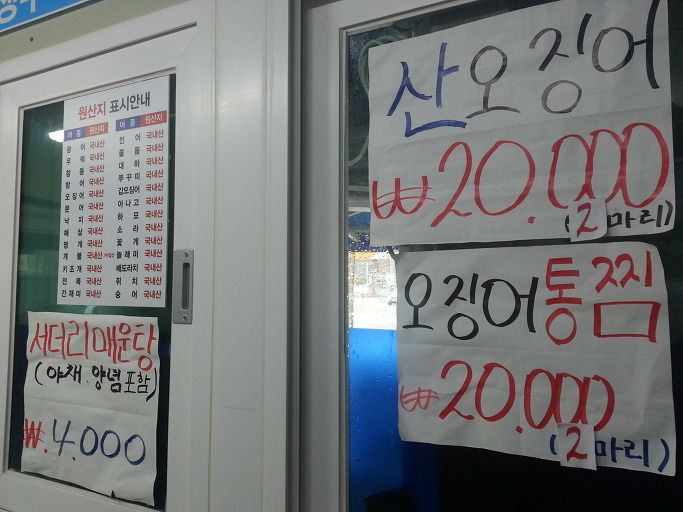 원산지 표시안내
어 종 원산지 어 종 원산지
광 어 국내산 전 어 국내산
우 럭 국내산 돌 돔 국내산
참 돔 국내산 대 하 국내산
어 국내산 쭈 꾸 미 국내산
오 징 어 국내산 갑오징어 국내산
문 어 국내산 아 나 고 국내산
낙 지 국내산 하 모 국내산
해 삼 국내산 소 라 국내산
멍 게 국내산 꽃 게 국내산
개 불 국내산 놀 래 미 국내산
키 조 개 국내산 배도라치 국내산
전 복 국내산 쥐 치 국내산
간 재 미 국내산 숭 어 국내산
서더리매운탕
(야채.양념포함)
₩.4.000
산오징어
₩20.000
(2마리)
오징어통찜
₩20.000
(2마리)